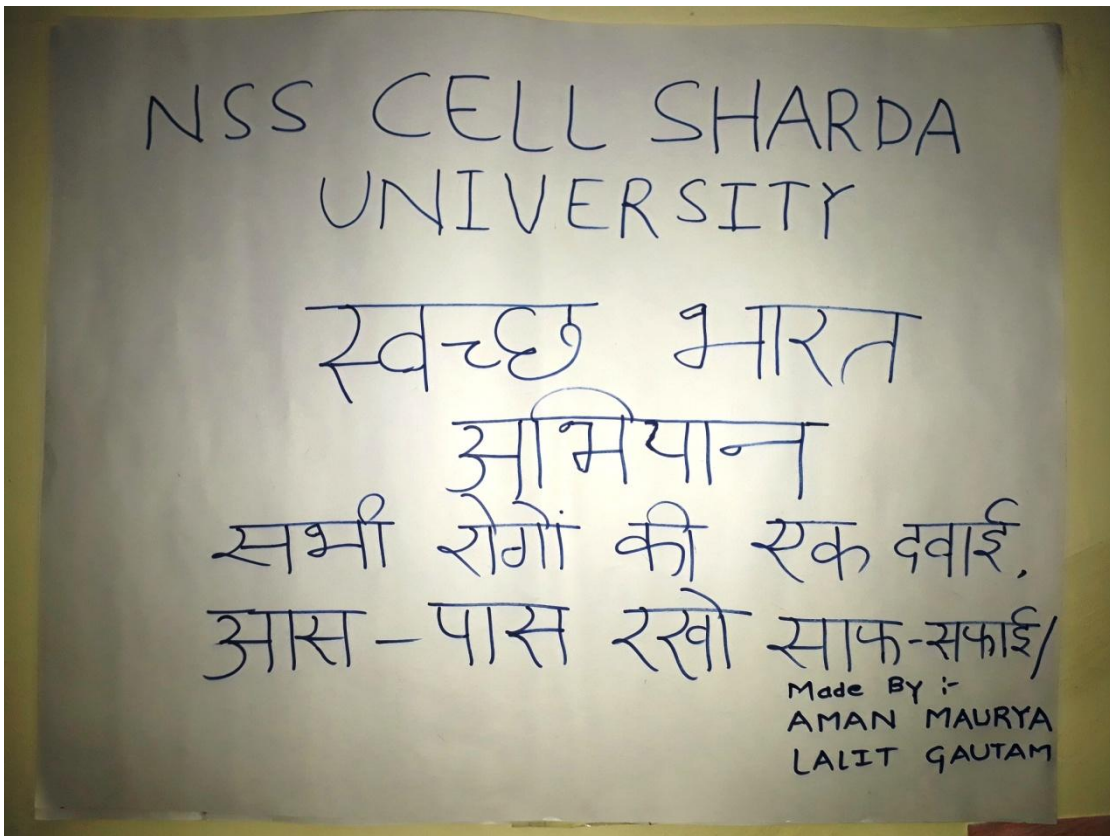 NSS CELL SHARDA
UNIVERSITY
स्वच्छ भारत
अभियान
सभी रोगों की एक दवाई,
आस-पास रखो साफ-सफाई/
Made By :-
AMAN MAURYA
LALIT GAUTAM